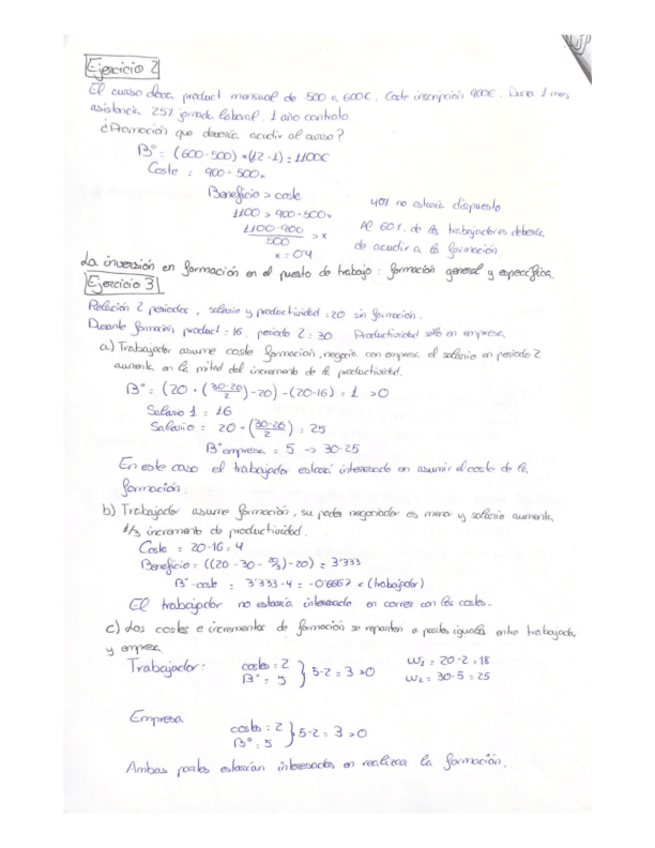 Ejercicio 2
El curso eleva product mensual de 500 a 600€. Coste inscripción 900€. Dura 1 mes,
asistencia 25% jornada laboral. 1 año contrato
¿Promoción que debería acudir al curso?
Bº = (600-500)*(12-1) = 1100€
Coste = 900-500x
Beneficio > coste
1100 > 900-500x
1100-900 / 500 > x
x = 0'4
40% no estaría dispuesto
Al 60% de los trabajadores debería
de acudir a la formación
La inversión en formación en el puesto de trabajo: formación general y específica.
Ejercicio 3
Relación 2 periodos, salario y productividad = 20 sin formación.
Durante formación product = 16, periodo 2 = 30 Productividad sólo en empresa
a) Trabajador asume coste formación, negocia con empresa el salario en periodo 2
aumenta en la mitad del incremento de la productividad.
Bº = (20 + (30-20/2) - 20) - (20-16) = 1 >0
Salario 1 = 16
Salario = 20 + (30-20/2) = 25
Bº empresa = 5 -> 30-25
En este caso el trabajador estará interesado en asumir el coste de la
formación.
b) Trabajador asume formación, su poder negociador es menor y salario aumenta
1/3 incremento de productividad.
Coste = 20-16 = 4
Beneficio = ((20 - 30 - /3) - 20) = 3'333
Bº - coste = 3'333 - 4 = -0'6667 (trabajador)
El trabajador no estaría interesado en correr con los costes.
c) Los costes e incrementos de formación se reparten a partes iguales entre trabajador
y empresa
Trabajador: costes = 2 Bº = 5 } 5-2 = 3 >0 W1 = 20-2 = 18
W2 = 30-5 = 25
Empresa costes = 2 Bº = 5 } 5-2 = 3 >0
Ambas partes estarían interesadas en realizar la formación.